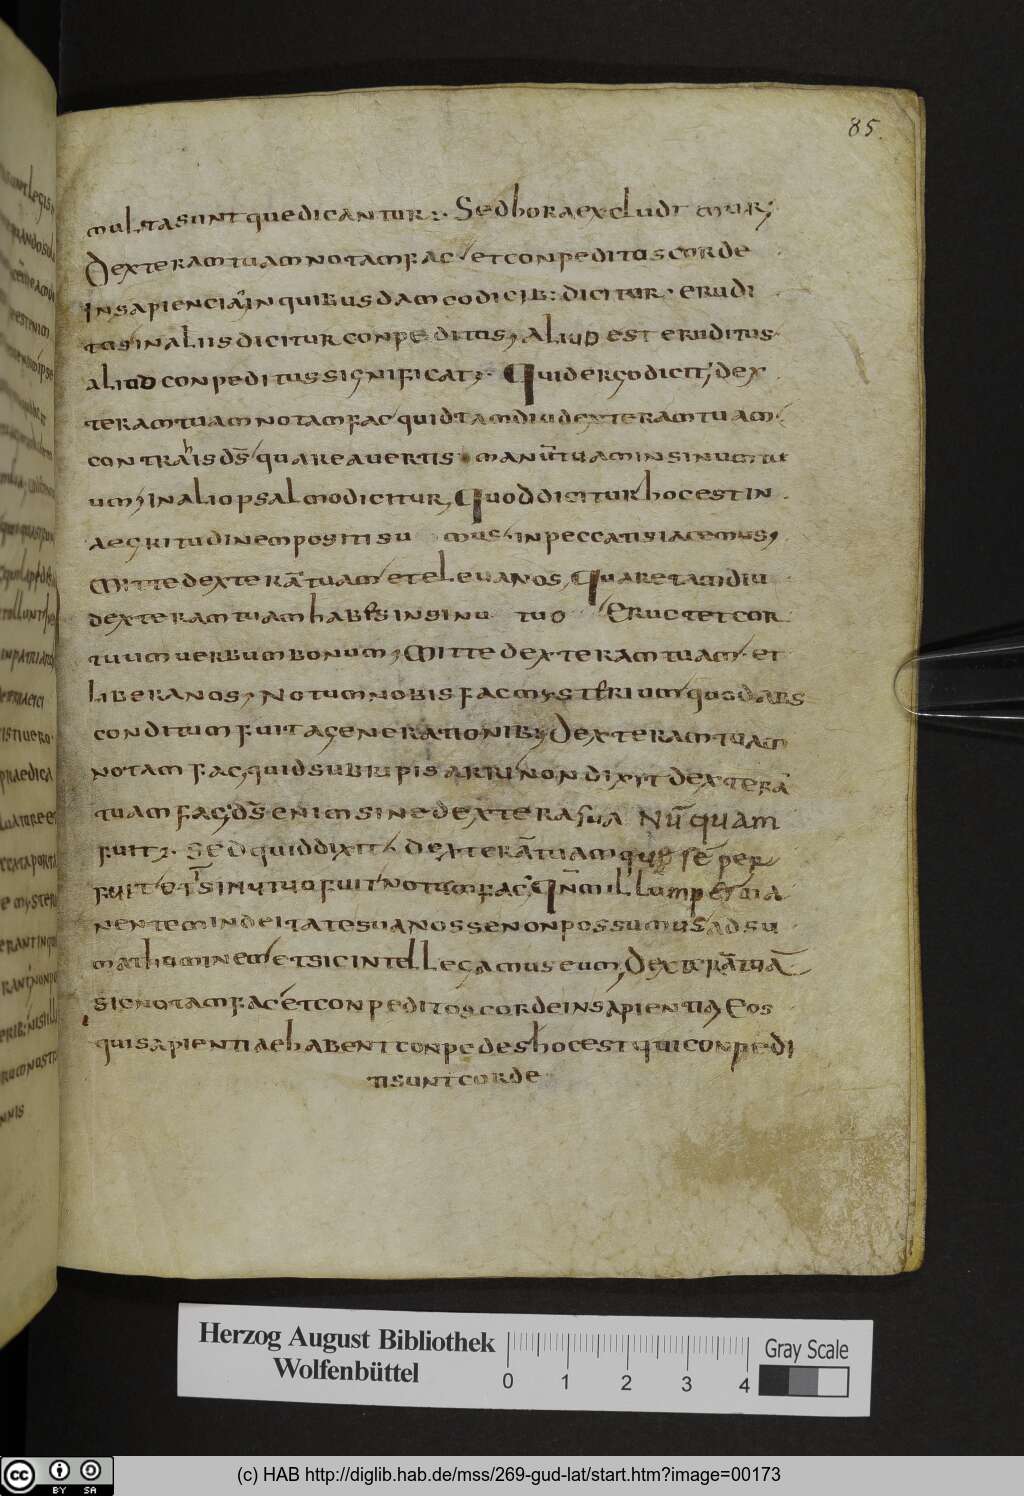 85.
multa sunt que dicantur:. Sed hora excludimur;
Dexteram tuam notam fac et conpeditos corde
in sapiencia in quibusdam codicib: dicitur. erudi
tos in aliis dicitur conpeditos, aliud est eruditus
aliud conpeditus significat;. Quid ergo dicit; dex
teram tuam notam fac quid tamdiu dexteram tuam
contrahis ds quare avertis manū tuam in sinum tu
um, in alio psalmo dicitur, Quod dicitur hoc est in
aegritudinem positi su mus in peccatis iacemus,
Mitte dexterā tuam et eleva nos, Quare tamdiu
dexteram tuam habes in sinu tuo Eructet cor
tuum verbum bonum, Mitte dexteram tuam et
libera nos, Notum nobis fac mysterium quod abs
conditum fuit a generationib; Dexteram tuam
notam fac, quid subripis arriū non dixit dexterā
tuam fac; ds enim sine dextera sua Nūquam
fuit;. Sed quid dixit dexterā tuam que sē per
fuit et in sinu tuo fuit notam fac, Qn̄m illam per ma
nentem in deitate sua nosse non possumus adsu
mat hominem et sic intellegamus eum, Dexterā tuā
sic notam fac et conpeditos corde in sapientia, Eos
qui sapientiae habent conpedes hoc est qui conpedi
ti sunt corde
Herzog August Bibliothek
Wolfenbüttel
0 1 2 3 4
Gray Scale
cc BY SA
(c) HAB http://diglib.hab.de/mss/269-gud-lat/start.htm?image=00173